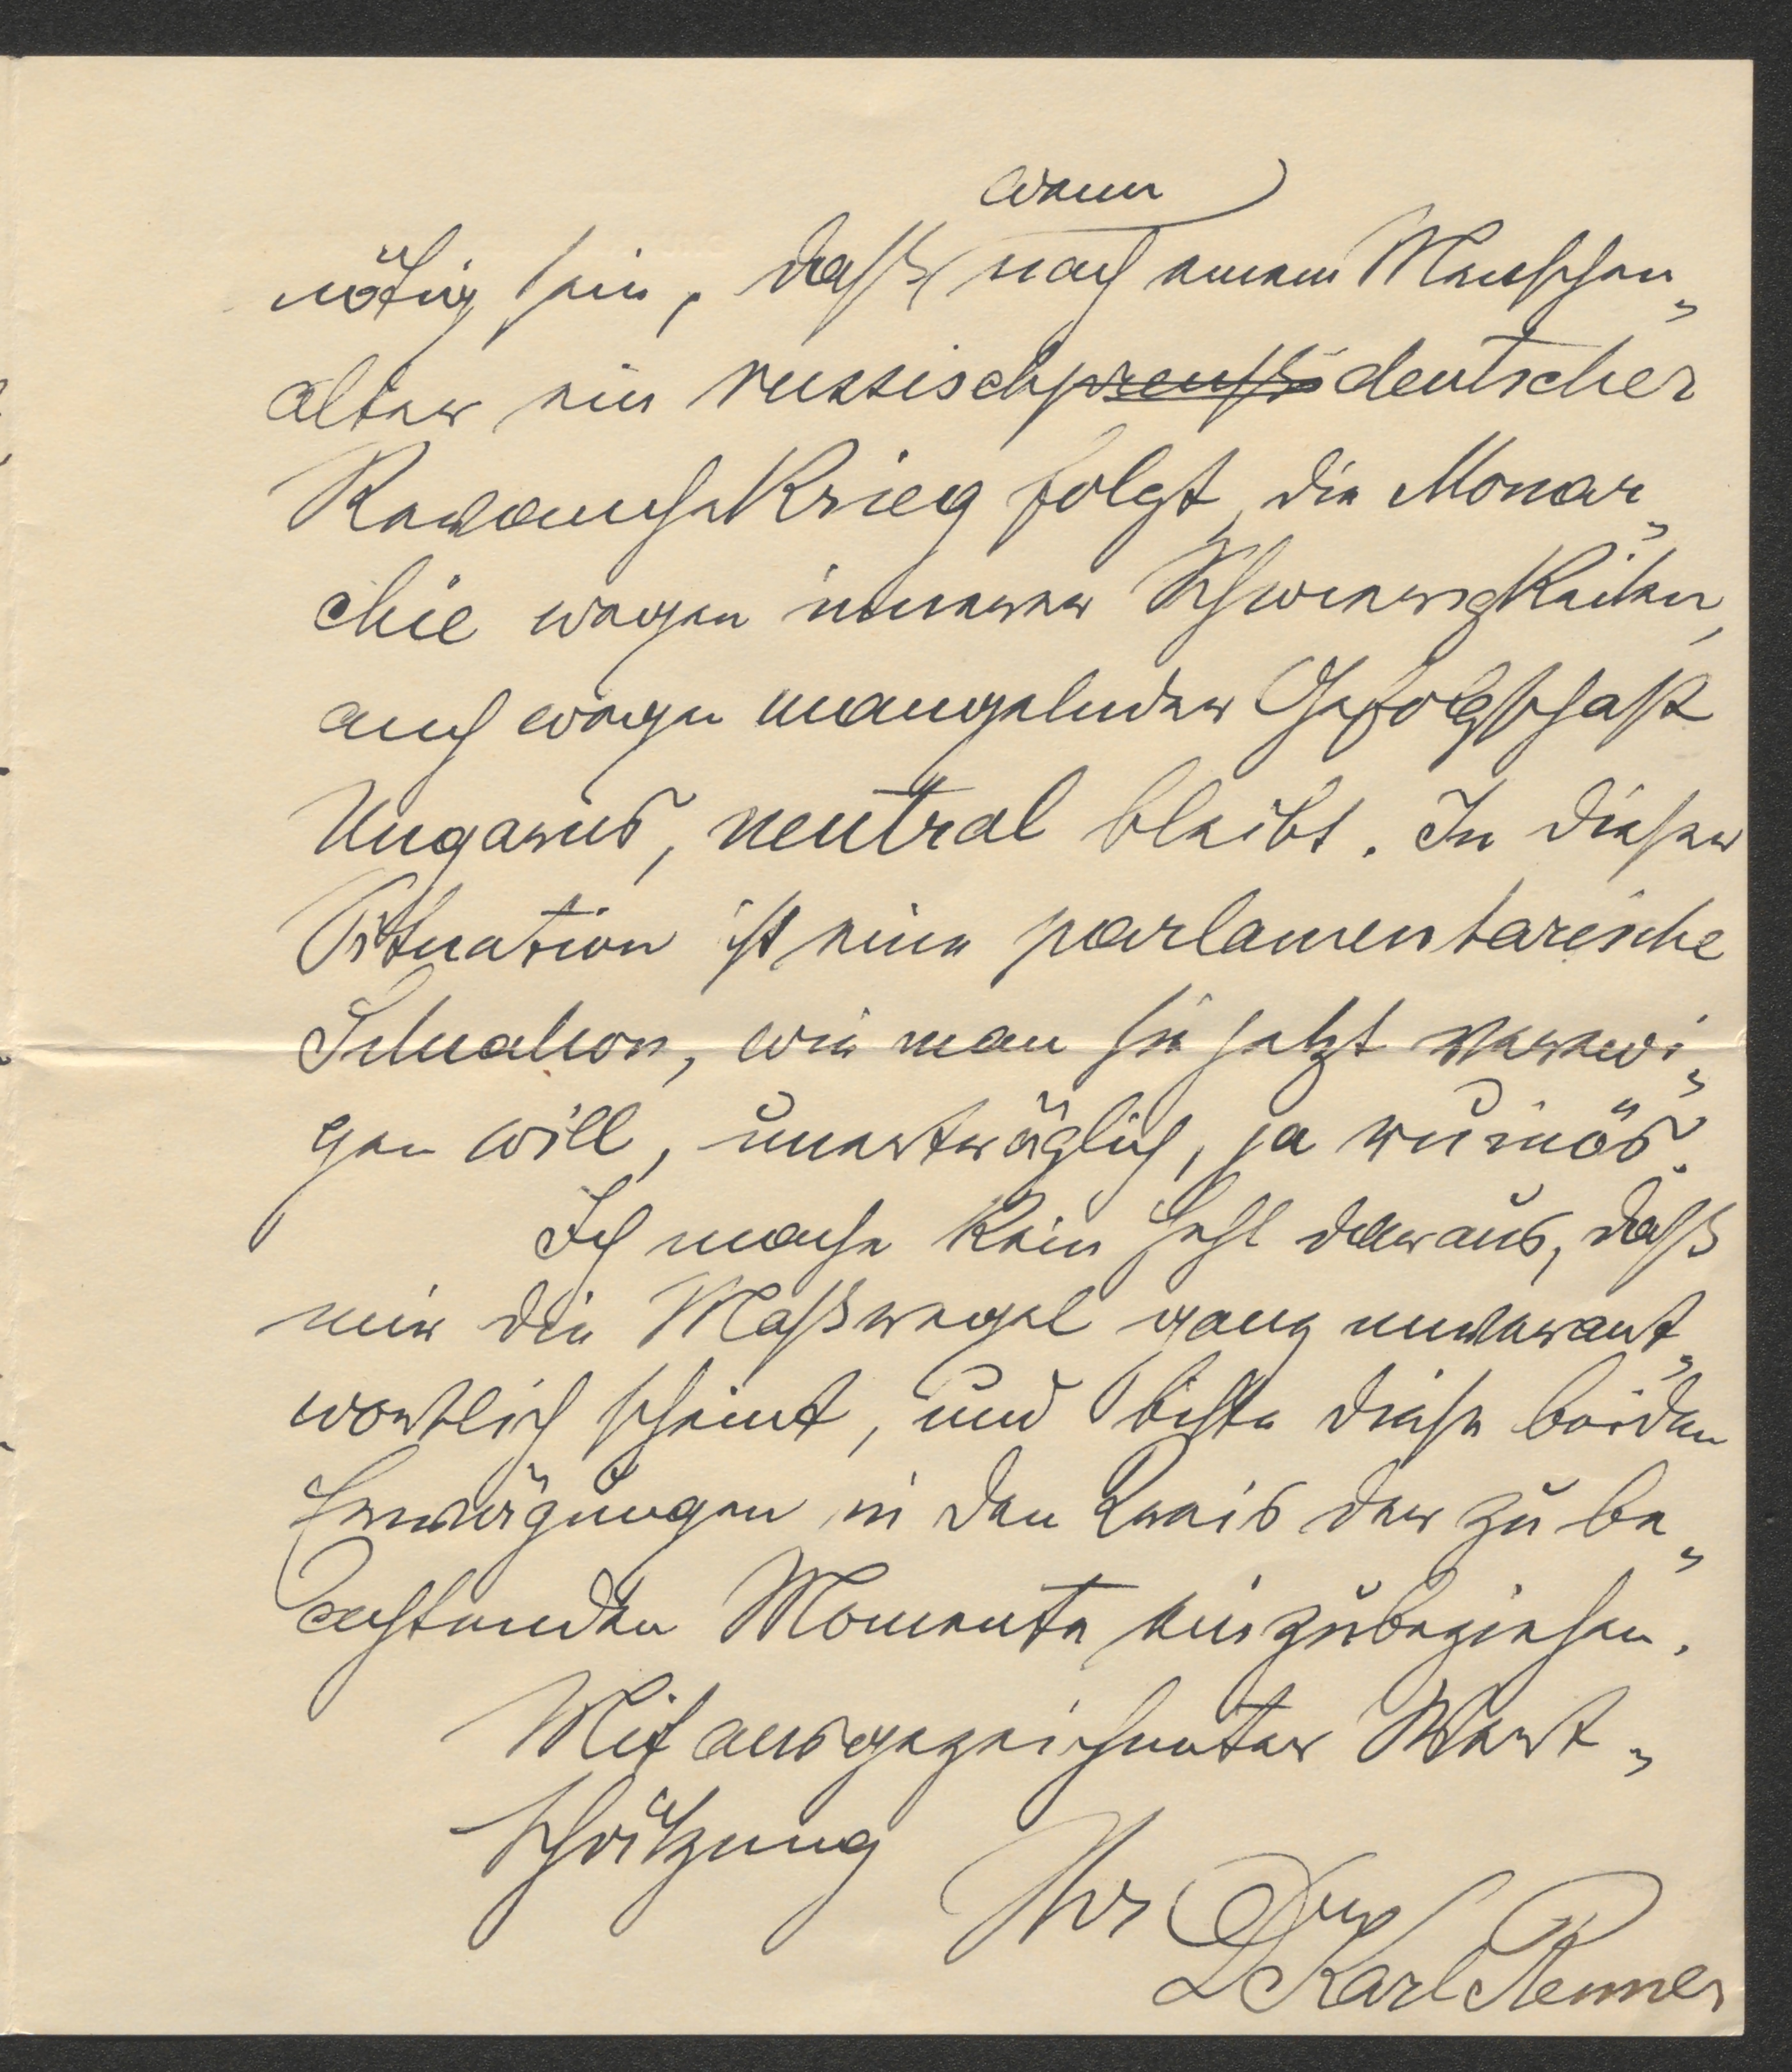 wenn
nötig sein, daß nach einem Menschen„
alter ein russischpreußdeutscher
RevancheKrieg folgt, die Monar„
chie wegen innerer Schwierigkeiten,
auch wegen mangelnder Gefolgschaft
Ungarns, neutral bleibt. In dieser
Situation ist eine parlamentarische
Situation, wie man sie jetzt verewi„
gen will, unerträglich, ja ruinös.
Ich mache kein Hehl daraus, daß
mir die Maßregel ganz unverant„
wortlich scheint, und bitte diese beiden
Erwägungen in den Kreis der zu be„
achtenden Momente einzubeziehen.
Mit ausgezeichneter Wert„
schätzung
Ihr
Dr Karl Renner